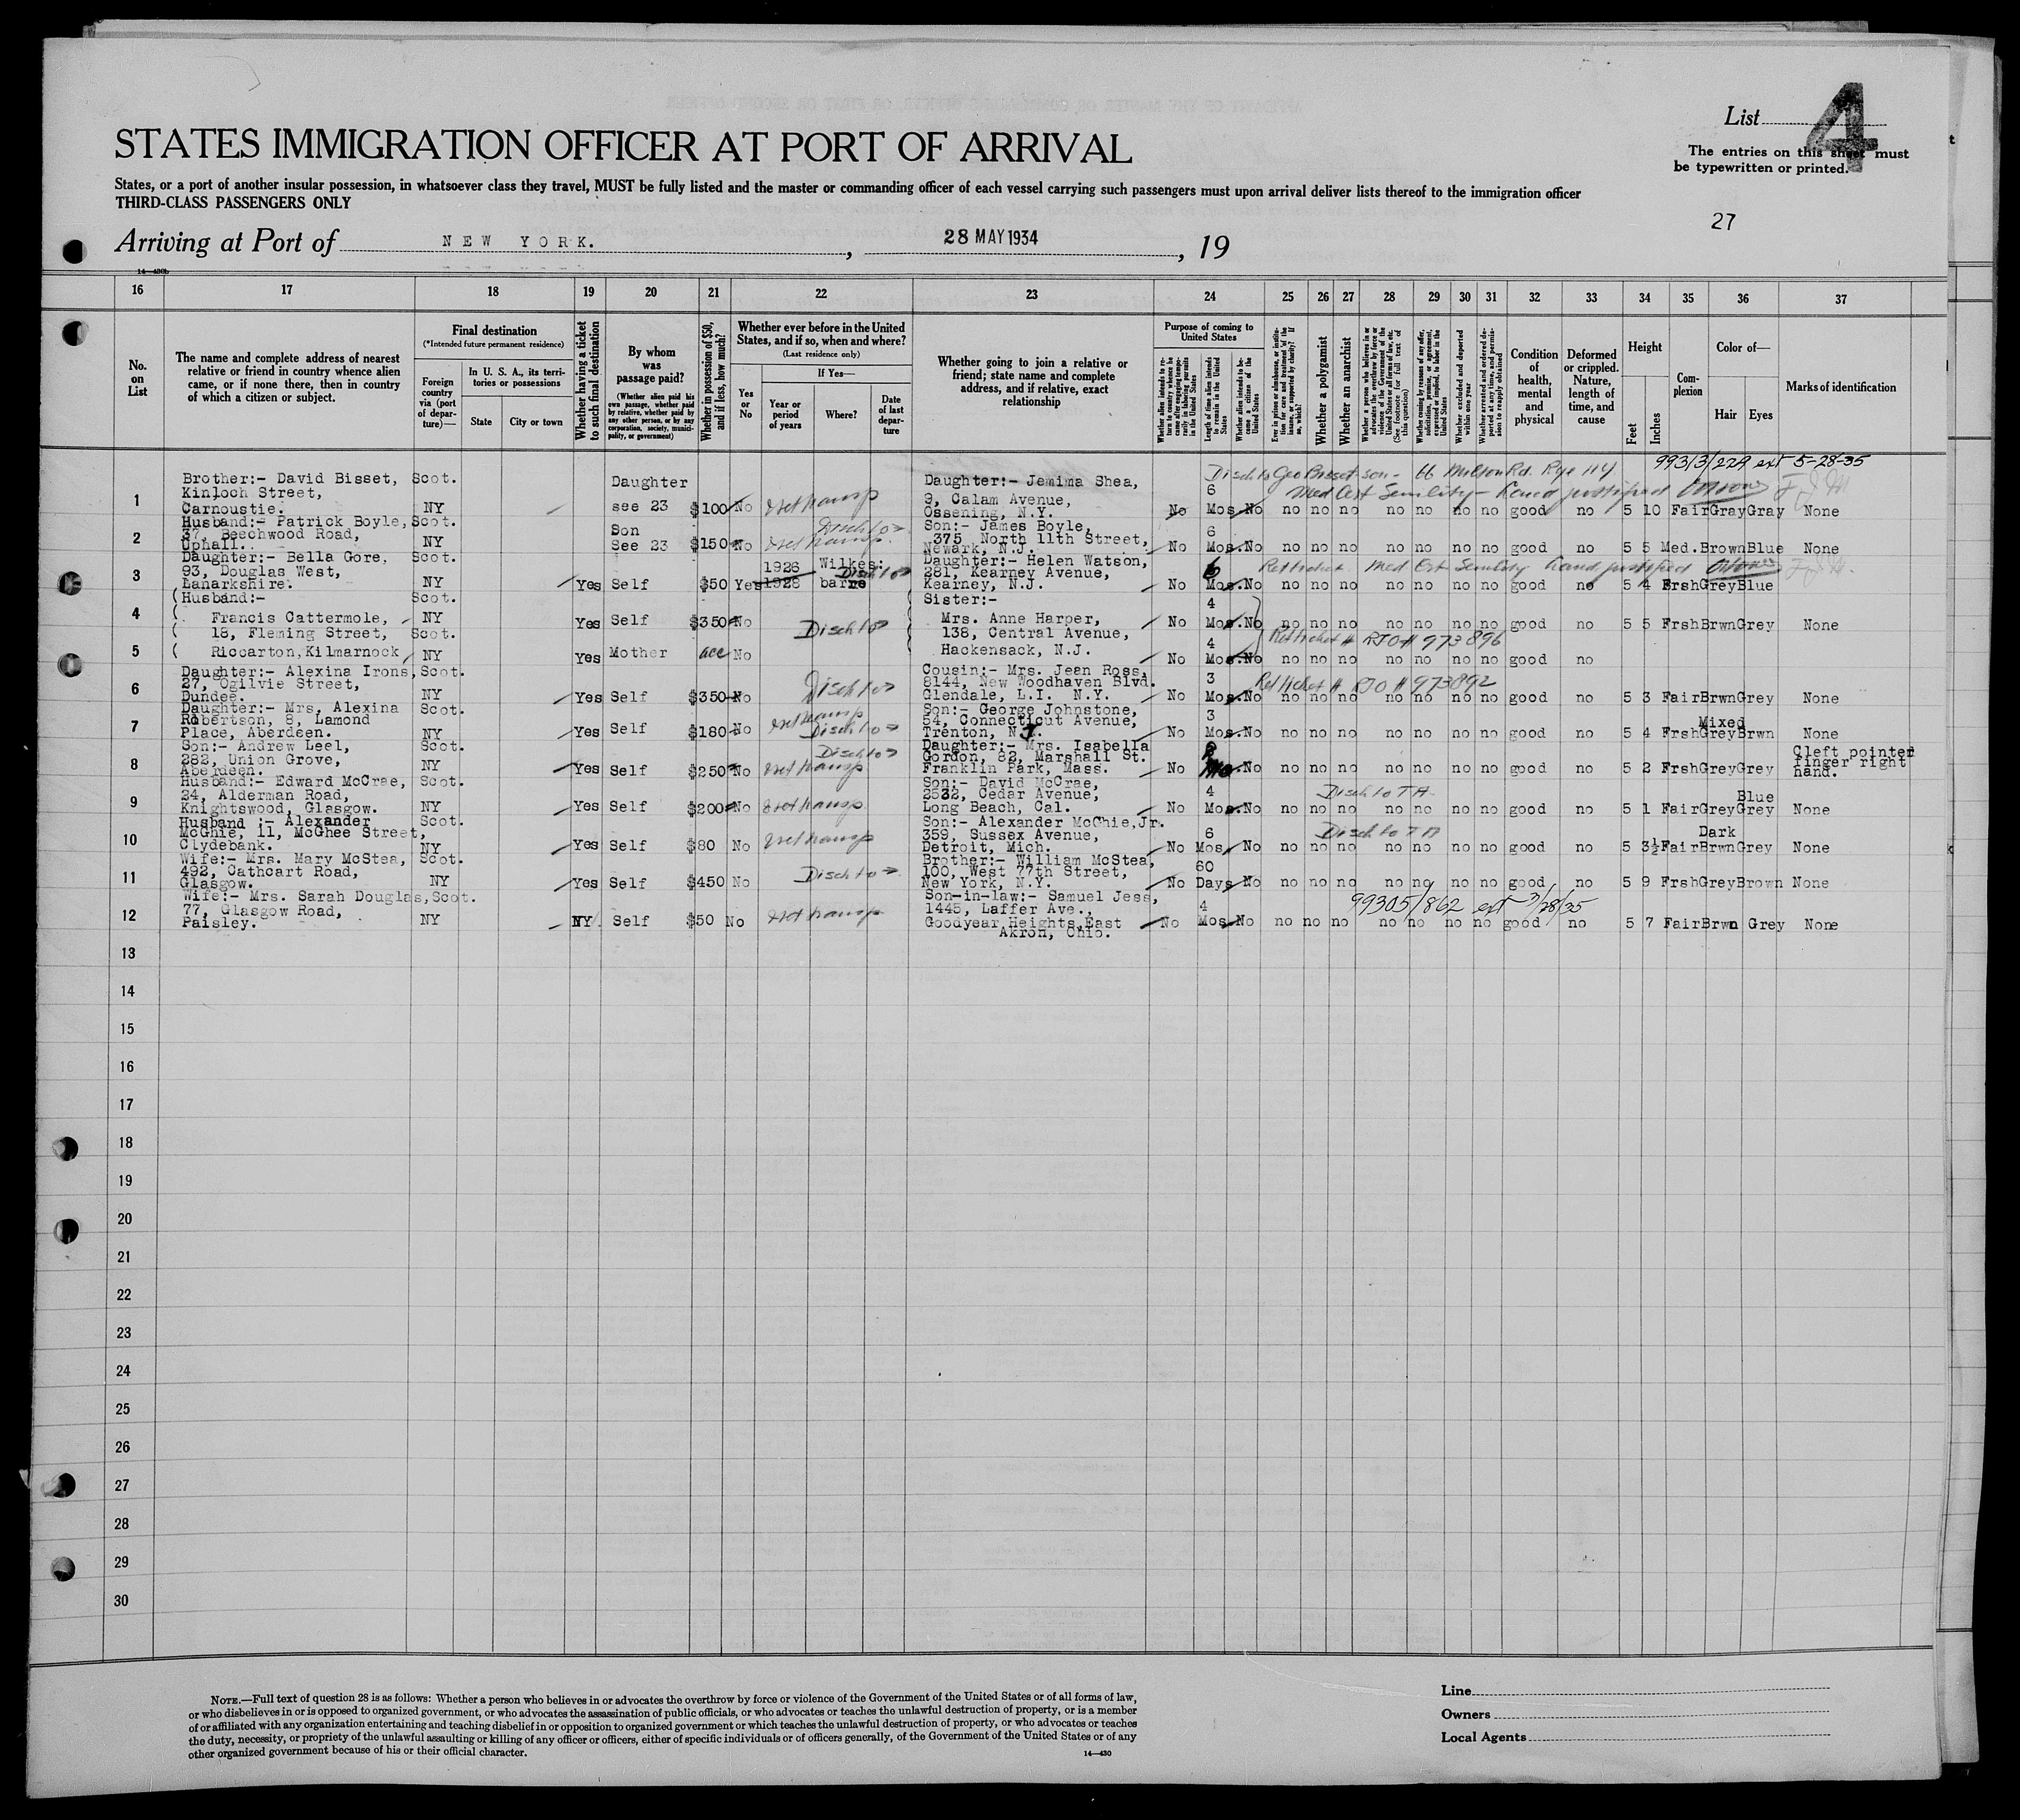 List 4
STATES IMMIGRATION OFFICER AT PORT OF ARRIVAL
The entries on this sheet must
be typewritten or printed.
States, or a port of another insular possession, in whatsoever class they travel, MUST be fully listed and the master or commanding officer of each vessel carrying such passengers must upon arrival deliver lists thereof to the immigration officer
THIRD-CLASS PASSENGERS ONLY
27
Arriving at Port of NEW YORK. , 28 MAY 1934 , 19
14—430b
16 17 18 19 20 21 22 23 24 25 26 27 28 29 30 31 32 33 34 35 36 37
No. on List
The name and complete address of nearest relative or friend in country whence alien came, or if none there, then in country of which a citizen or subject.
Final destination
(*Intended future permanent residence)
Foreign country via (port of departure)—
In U. S. A., its territories or possessions
State
City or town
Whether having a ticket to such final destination
By whom was passage paid?
(Whether alien paid his own passage, whether paid by relative, whether paid by any other person, or by any corporation, society, municipality, or government)
Whether in possession of $50, and if less, how much?
Whether ever before in the United States, and if so, when and where?
(Last residence only)
Yes or No
If Yes—
Year or period of years
Where?
Date of last departure
Whether going to join a relative or friend; state name and complete address, and if relative, exact relationship
Purpose of coming to United States
Whether alien intends to return to country whence he came after engaging temporarily in laboring pursuits in the United States
Length of time alien intends to remain in the United States
Whether alien intends to become a citizen of the United States
Ever in prison or almshouse, or institution for care and treatment of the insane, or supported by charity? If so, which?
Whether a polygamist
Whether an anarchist
Whether a person who believes in or advocates the overthrow by force or violence of the Government of the United States or all forms of law, etc. (See footnote for full text of this question)
Whether coming by reasons of any offer, solicitation, promise, or agreement, expressed or implied, to labor in the United States
Whether excluded and deported within one year
Whether arrested and ordered deported at any time, and permission to reapply obtained
Condition of health, mental and physical
Deformed or crippled. Nature, length of time, and cause
Height
Feet
Inches
Complexion
Color of—
Hair
Eyes
Marks of identification
99313/229 ext 5-28-35
Disch to Geo Bisset son - 66 Milton Rd. Rye NY
Med Cert Senility -
1 Brother:- David Bisset, Kinloch Street, Carnoustie. Scot. NY Daughter see 23 $100 No Daughter:- Jemima Shea, 9, Calam Avenue, Ossening, N.Y. No 6 Mos. No no no no no no no no good no 5 10 Fair Gray Gray None
2 Husband:- Patrick Boyle, 37, Beechwood Road, Uphall. Scot. NY Son See 23 $150 No Disch to Son:- James Boyle, 375 North 11th Street, Newark, N.J. No 6 Mos. No no no no no no no no good no 5 5 Med. Brown Blue None
Ret ticket Med Cert Senility
3 Daughter:- Bella Gore, 93, Douglas West, Lanarkshire. Scot. NY Yes Self $50 Yes 1926 1928 Wilkes: barre Disch to Daughter:- Helen Watson, 281, Kearney Avenue, Kearney, N.J. No 6 Mos. No no no no no no no no good no 5 4 Frsh Grey Blue
4 (Husband:- Francis Cattermole, Scot. NY Yes Self $350 No Disch to Sister:- Mrs. Anne Harper, No 4 Mos. No no no no no no no no good no 5 5 Frsh Brwn Grey None
Ret ticket # RTO # 973896
5 ( 18, Fleming Street, Riccarton, Kilmarnock Scot. NY Yes Mother acc No 138, Central Avenue, Hackensack, N.J. No 4 Mos. No no no no no no no no good no
Ret ticket # RTO # 973892
6 Daughter:- Alexina Irons, 27, Ogilvie Street, Dundee. Scot. NY Yes Self $350 No Disch to Cousin:- Mrs. Jean Ross, 8144, New Woodhaven Blvd. Glendale, L.I. N.Y. No 3 Mos. No no no no no no no no good no 5 3 Fair Brwn Grey None
7 Daughter:- Mrs, Alexina Robertson, 8, Lamond Place, Aberdeen. Scot. NY Yes Self $180 No Disch to Son:- George Johnstone, 54, Connecticut Avenue, Trenton, N.J. No 3 Mos. No no no no no no no no good no 5 4 Frsh Mixed Grey Brwn None
8 Son:- Andrew Leel, 282, Union Grove, Aberdeen. Scot. NY Yes Self $250 No Disch to Daughter:- Mrs. Isabella Gordon, 82, Marshall St. Franklin Park, Mass. No No no no no no no no no good no 5 2 Frsh Grey Grey Cleft pointer finger right hand.
Disch to TA
9 Husband:- Edward McCrae, 24, Alderman Road, Knightswood, Glasgow. Scot. NY Yes Self $200 No Son:- David McCrae, 2532, Cedar Avenue, Long Beach, Cal. No 4 Mos. No no no no no no no no good no 5 1 Fair Grey Blue Grey None
Disch to TA
10 Husband :- Alexander McGhie, 11, McGhee Street, Clydebank. Scot. NY Yes Self $80 No Son:- Alexander McGhie, Jr. 359, Sussex Avenue, Detroit, Mich. No 6 Mos. No no no no no no no no good no 5 3½ Fair Dark Brwn Grey None
11 Wife:- Mrs. Mary McStea, 492, Cathcart Road, Glasgow. Scot. NY Yes Self $450 No Disch to Brother:- William McStea, 100, West 77th Street, New York, N.Y. No 60 Days No no no no no no no no good no 5 9 Frsh Grey Brown None
99305/862 ext 3/28/35
12 Wife:- Mrs. Sarah Douglas, 77, Glasgow Road, Paisley. Scot. NY NY Self $50 No Son-in-law:- Samuel Jess, 1445, Laffer Ave., Goodyear Heights, East Akron, Ohio. No 4 Mos. No no no no no no no no good no 5 7 Fair Brwn Grey None
13
14
15
16
17
18
19
20
21
22
23
24
25
26
27
28
29
30
NOTE.—Full text of question 28 is as follows: Whether a person who believes in or advocates the overthrow by force or violence of the Government of the United States or of all forms of law,
or who disbelieves in or is opposed to organized government, or who advocates the assassination of public officials, or who advocates or teaches the unlawful destruction of property, or is a member
of or affiliated with any organization entertaining and teaching disbelief in or opposition to organized government or which teaches the unlawful destruction of property, or who advocates or teaches
the duty, necessity, or propriety of the unlawful assaulting or killing of any officer or officers, either of specific individuals or of officers generally, of the Government of the United States or of any
other organized government because of his or their official character.
14—430
Line
Owners
Local Agents